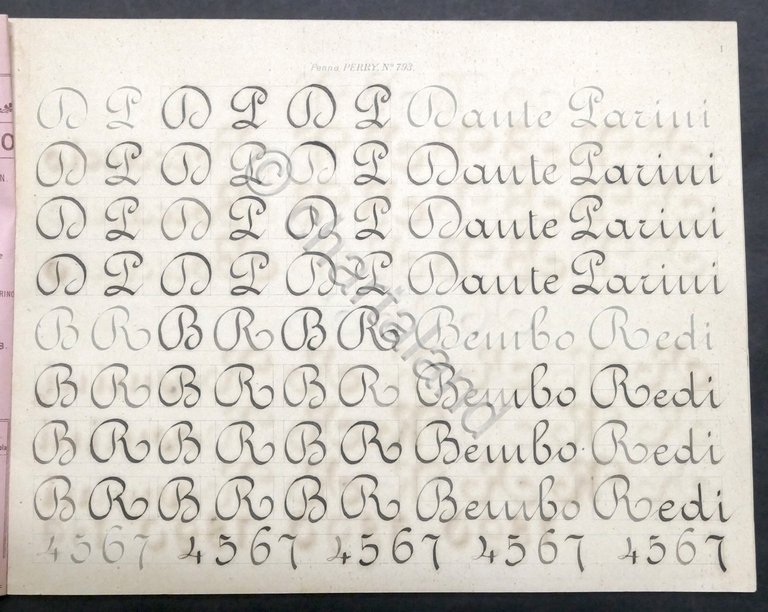 1
Penna PERRY, Nº 793.
D P D P D P Dante Parini
D P D P D P Dante Parini
D P D P D P Dante Parini
D P D P D P Dante Parini
B R B R B R Bembo Redi
B R B R B R Bembo Redi
B R B R B R Bembo Redi
B R B R B R Bembo Redi
4567 4567 4567 4567 4567
© chartaland
O
N.
e
RINO
B.